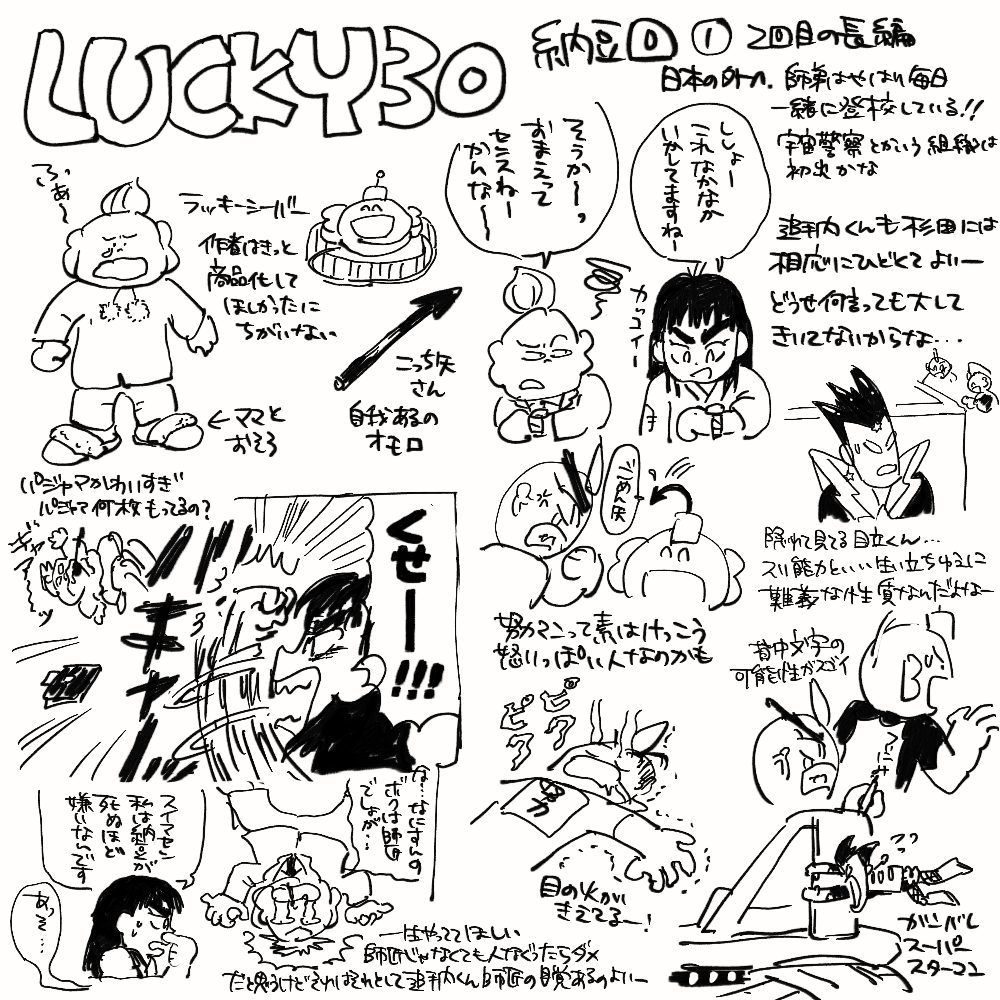 LUCKY30
納豆回① 2回目の長編
日本の外ハ、師弟はやはり毎日
一緒に登校している!!
宇宙警察とかいう組織は
初出かな
追手内くんも杉田には
相応にひどくてよいー
どうせ何言っても大して
きいてないからな…
ししょー
これなかなか
いかしてますねー
そうかーっ
おまえって
センスねー
かんな〜
カッコイー
ふぁ〜
ラッキーシーバー
作者はきっと
商品化して
ほしかったに
ちがいない
こっち矢
さん
自我あるの
オモロ
←ママと
おそろ
パジャマかわいすぎ
パジャマ何枚もってるの?
ギャアーッ
くせー!!!
ごめん矢
隠れて見てる目立くん…
スリ能力といい生い立ちゆえに
難義な性質なんだよなー
努力マンって素はけっこう
怒いっぽい人なのかも
背中文字の
可能性がスゴイ
努力
目の火が
きえてるー!
スイマセン
私は納豆が
死ぬほど
嫌いなんです
あっそ…
な…なにすんの
ボクは師匠
でしょが…
一生やっててほしい
師匠じゃなくても人なぐったらダメ
だと思うけどそれはそれとして追手内くん師匠の自覚あるのよいー
ガンバレ
スーパー
スターマン